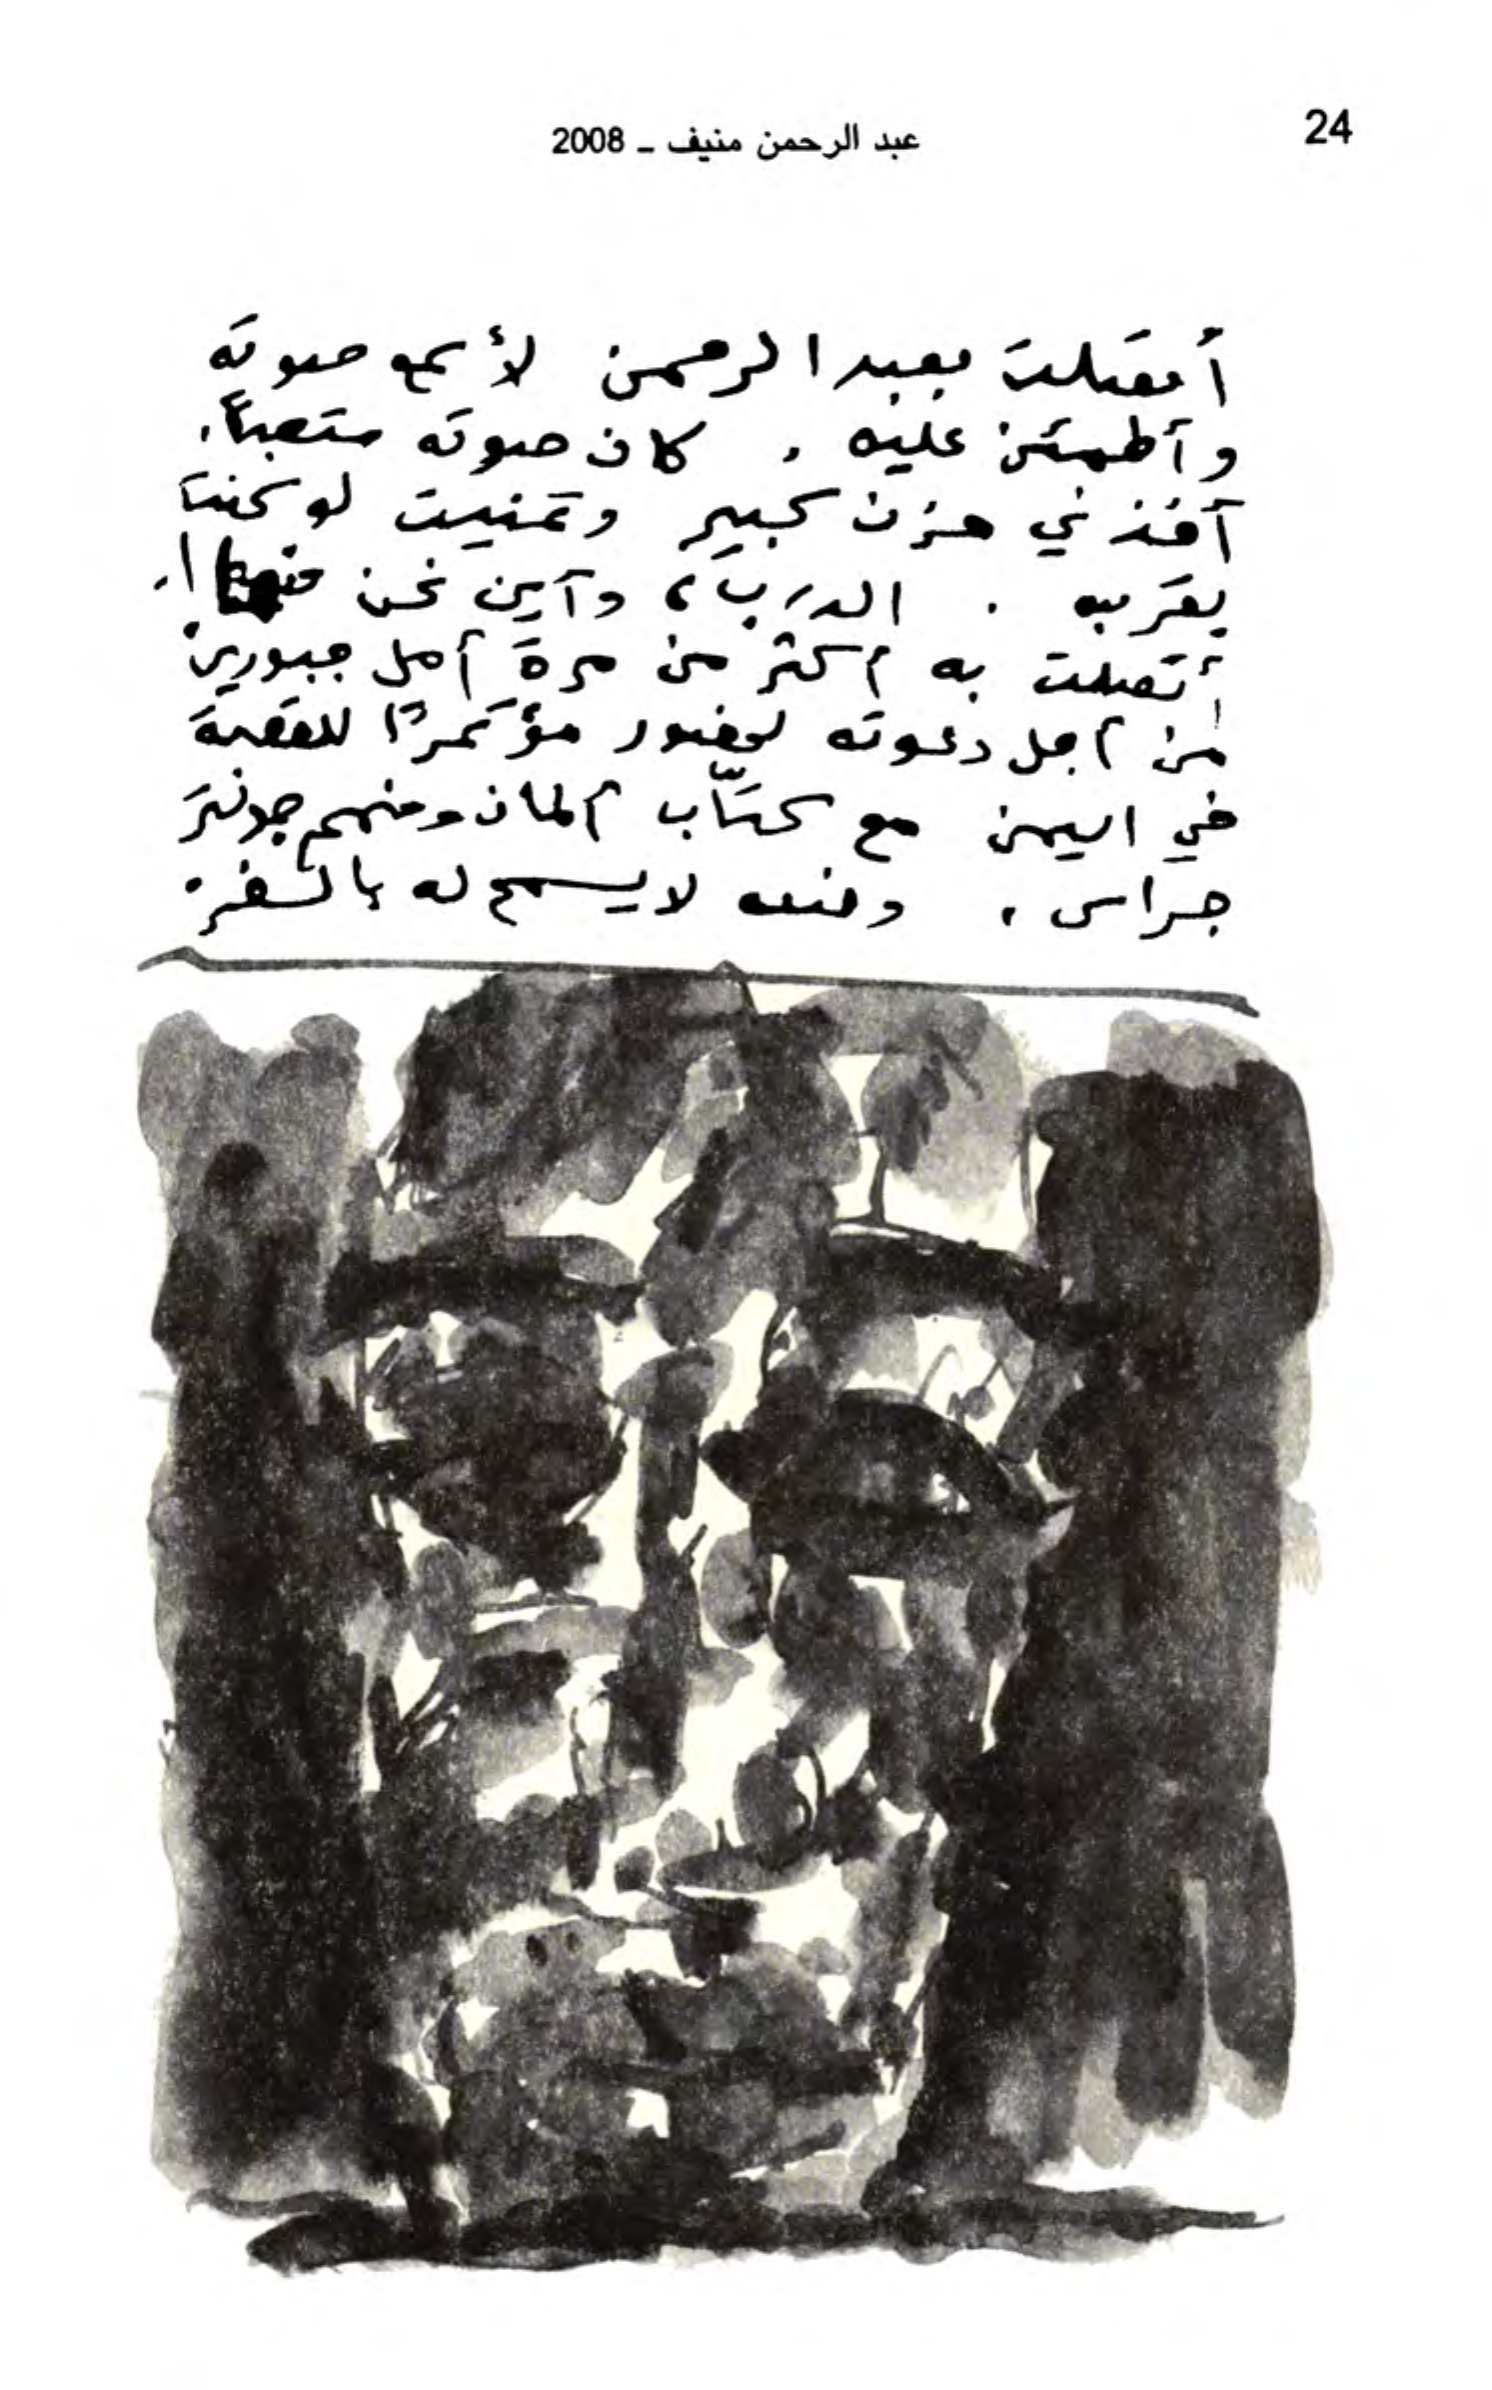 24
عبد الرحمن منيف ـ 2008
أتصلت بعبد الرحمن لأسمع صوته
وأطمئن عليه . كان صوته متعباً .
أخذني حزن كبير وتمنيت لو كنت
بقربه . الدرب ، وأين نحن منها ! .
أتصلت به أكثر من مرة أمل جبوري
من أجل دعوته لحضور مؤتمرًا للقصة
في اليمن مع كتّاب ألمان ومنهم جونتر
جراس ، وضعه لا يسمح له بالسفر .